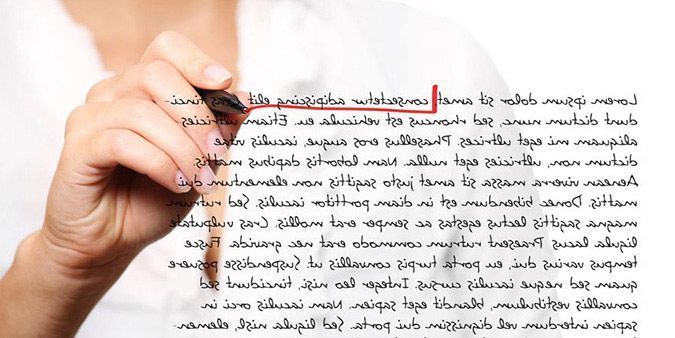 Lorem ipsum dolor sit amet, consectetur adipiscing elit. Cras tinci-
dunt dictum nunc, sed rhoncus est vehicula eu. Etiam ultricies
aliquam mi eget ultrices. Phasellus eros augue, iaculis vitae
dictum non, ultricies eget nulla. Nam lobortis dapibus mattis.
Aenean viverra massa sit amet justo sagittis non elementum dui
mattis. Donec bibendum est in diam porttitor iaculis. Sed rutrum
magna sagittis lectus egestas ac semper erat mollis. Cras vulputate
ligula lacus. Praesent rutrum commodo erat nec gravida. Fusce
tempus varius dui, eu porta turpis convallis ut. Suspendisse posuere
quam sed neque iaculis cursus. Integer leo nisi, tincidunt sed
convallis vestibulum, blandit eget sapien. Nam iaculis in orci in
sapien interdum vel dignissim dui porta. Sed ligula nisl, elemen-